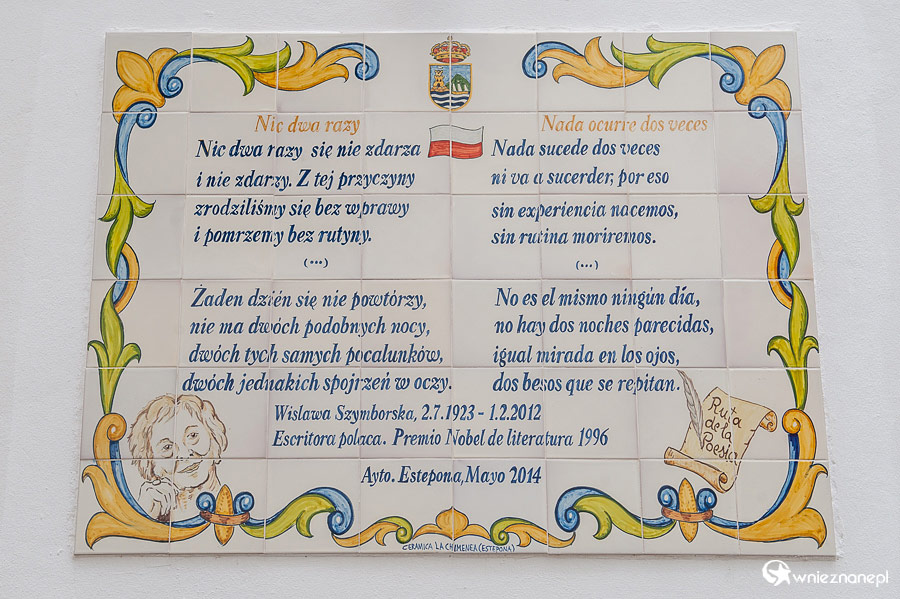 Nic dwa razy
Nic dwa razy się nie zdarza
i nie zdarzy. Z tej przyczyny
zrodziliśmy się bez wprawy
i pomrzemy bez rutyny.
(...)
Żaden dzień się nie powtórzy,
nie ma dwóch podobnych nocy,
dwóch tych samych pocałunków,
dwóch jednakich spojrzeń w oczy.
Nada ocurre dos veces
Nada sucede dos veces
ni va a sucerder, por eso
sin experiencia nacemos,
sin rutina moriremos.
(...)
No es el mismo ningún día,
no hay dos noches parecidas,
igual mirada en los ojos,
dos besos que se repitan.
Wislawa Szymborska, 2.7.1923 - 1.2.2012
Escritora polaca. Premio Nobel de literatura 1996
Ruta
de la
Poesía
Ayto. Estepona, Mayo 2014
CERAMICA LA CHIMENEA (ESTEPONA)
wnieznane.pl